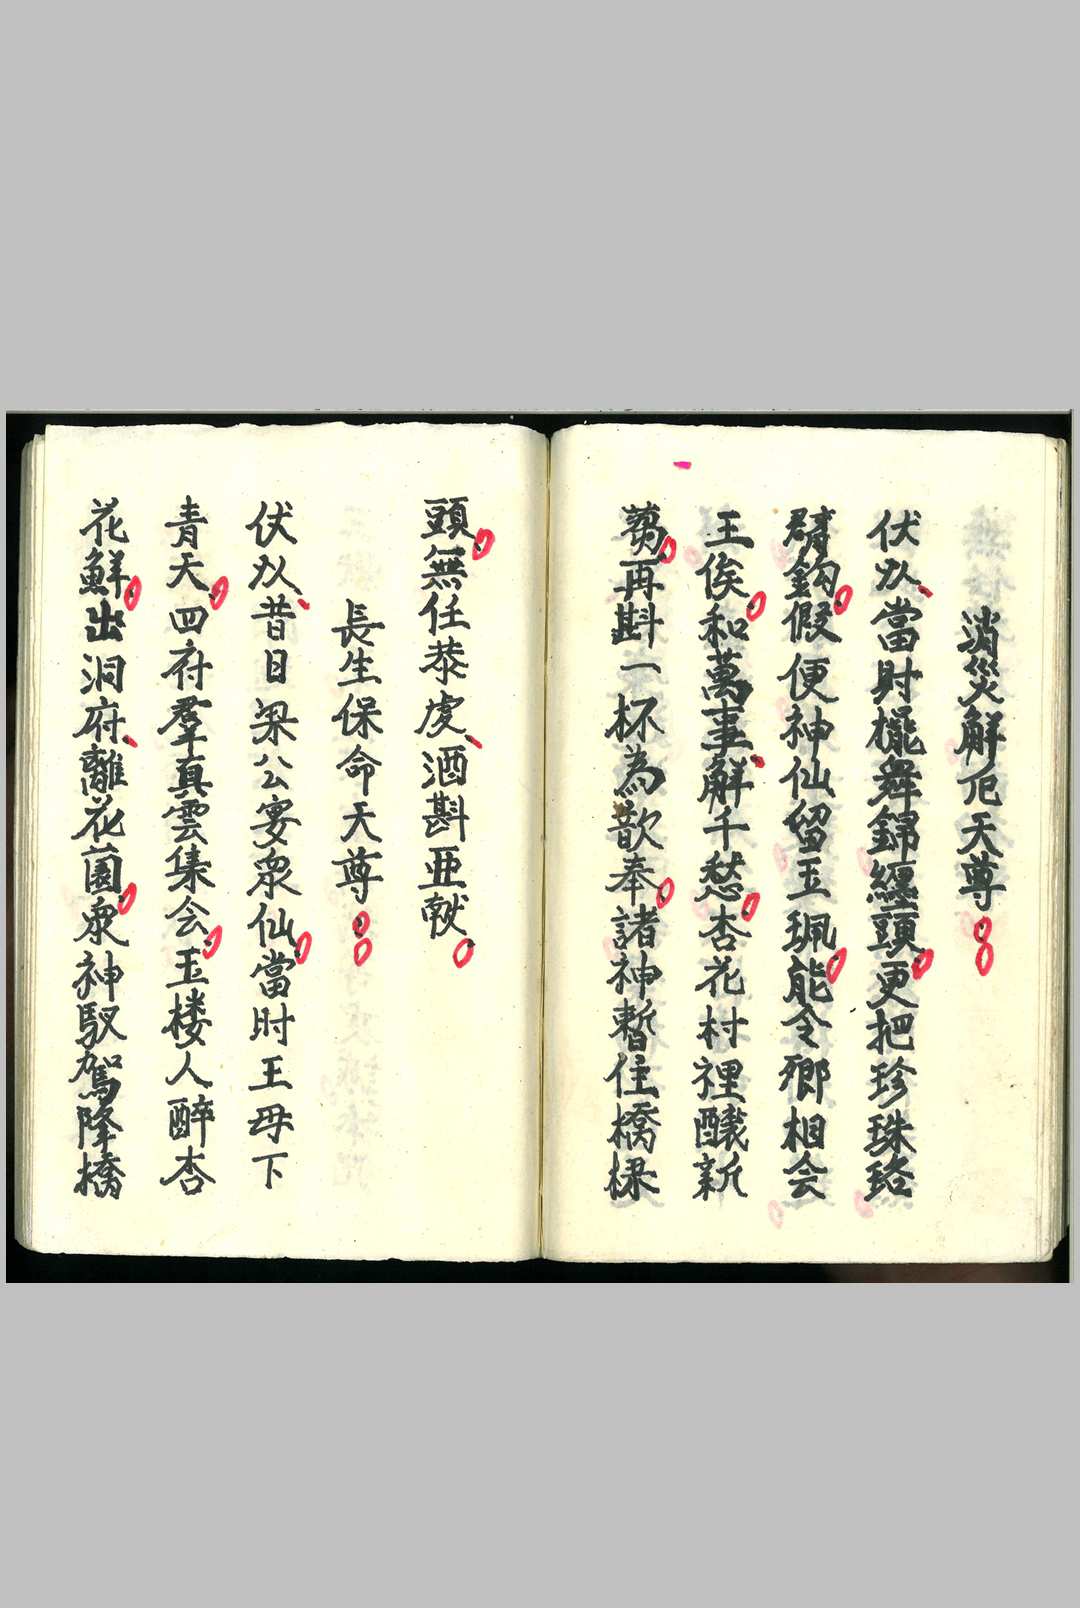 消災解厄天尊
伏以當時擺舞錦纏頭更把珍珠珞
臂鈎假便神仙留玉珮能令鄉相会
王侯和萬事解千愁杏花村裡釀新
蒭再斟一杯為歆奉諸神暫住橋樑
頭無任恭虔酒斟亜献
長生保命天尊
伏以昔日梁公宴衆仙當时王母下
青天四府羣真雲集会玉楼人醉杏
花鮮出洞府離花園衆神馭駕降橋